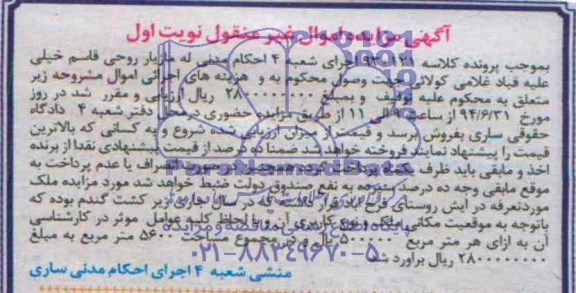 آگهی مزایده اموال غیر منقول نوبت اول
بموجب پرونده کلاسه ۹۳۰۱۲۱ اجرای شعبه ۴ احکام مدنی له مازیار روحی قاسم خیلی
علیه قباد غلامی کولائی جهت وصول محکوم به و هزینه های اجرائی اموال مشروحه زیر
متعلق به محکوم علیه توقیف و بمبلغ ۲۸۰۰۰۰۰۰۰۰ ریال ارزیابی و مقرر شد در روز
مورخ ۹۴/۶/۳۱ از ساعت ۹ الی ۱۱ از طریق مزایده حضوری در محل دفتر شعبه ۴ دادگاه
حقوقی ساری بفروش برسد و قیمت از میزان ارزیابی شده شروع و به کسانی که بالاترین
قیمت را پیشنهاد نمایند فروخته خواهد شد ضمنا ده درصد از قیمت پیشنهادی نقدا از برنده
اخذ و مابقی باید ظرف یکماه پرداخت گردد همچنین در صورت انصراف یا عدم پرداخت به
موقع مابقی وجه ده درصد سپرده به نفع صندوق دولت ضبط خواهد شد مورد مزایده ملک
موردتعرفه در ایش روستای فرح آباد قرار داشته که در سال جاری زیر کشت گندم بوده که
باتوجه به موقعیت مکانی ملک و نوع کاربری آن و با لحاظ کلیه عوامل موثر در کارشناسی
آن به ازای هر متر مربع ۵۰۰۰۰۰ ریال و در مجموع مساحت ۵۶۰۰ متر مربع به مبلغ
۲۸۰۰۰۰۰۰۰۰ ریال برآورد شد
منشی شعبه ۴ اجرای احکام مدنی ساری
ParsNamadData
پایگاه اطلاع رسانی مناقصه و مزایده
۰۲۱-۸۸۳۴۹۶۷۰-۵